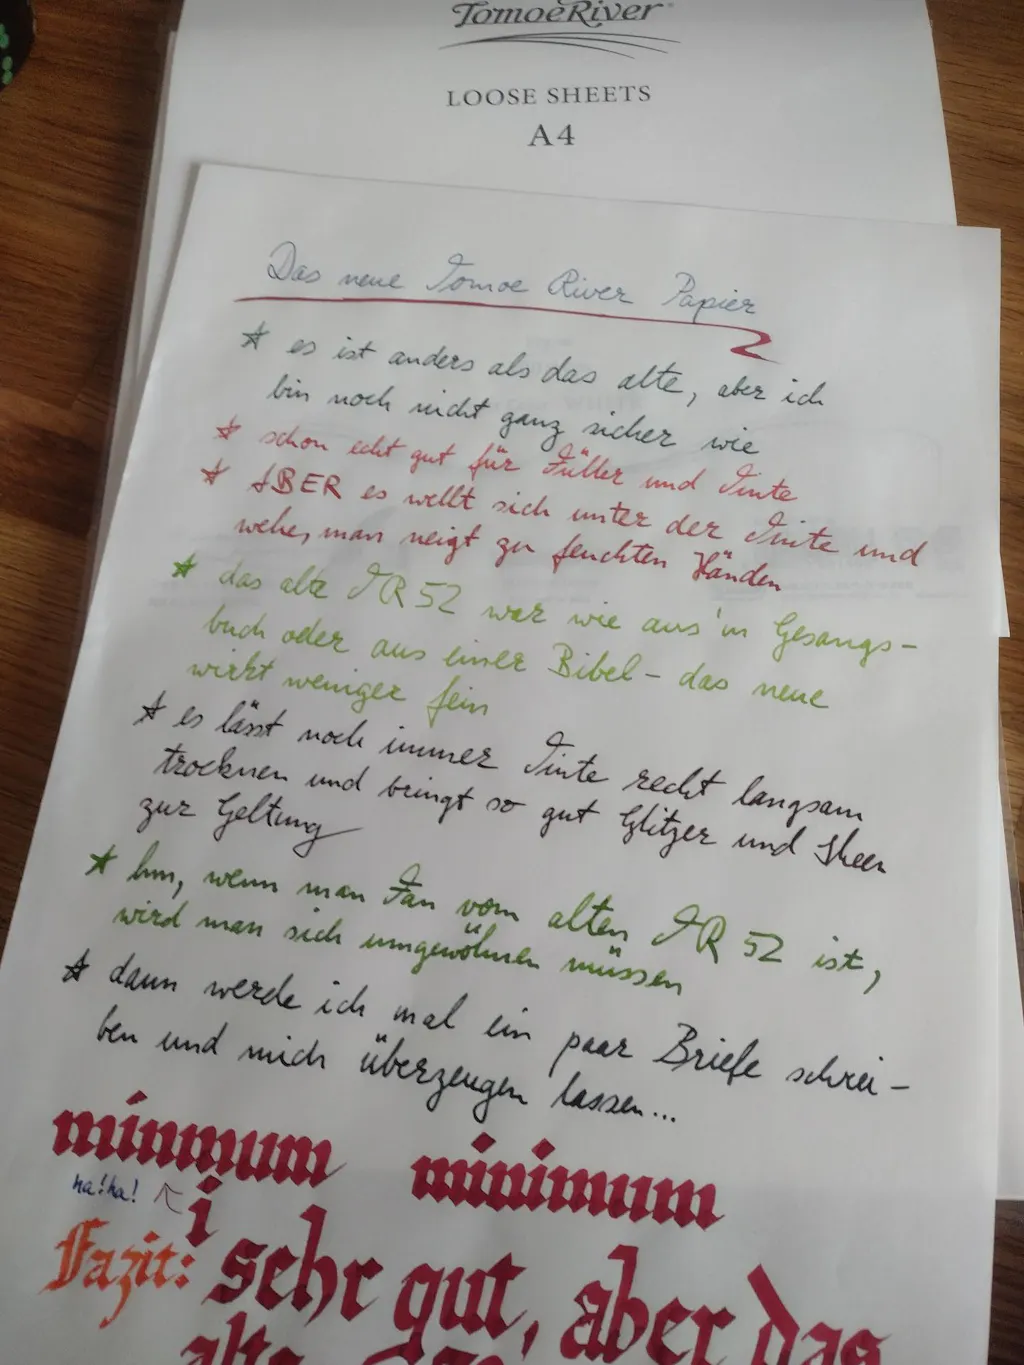 TomoeRiver
LOOSE SHEETS
A4
Das neue Tomoe River Papier
★ es ist anders als das alte, aber ich
bin noch nicht ganz sicher wie
★ schon echt gut für Füller und Tinte
★ ABER es wellt sich unter der Tinte und
wehe, man neigt zu feuchten Händen
★ das alte TR 52 war wie aus'm Gesangs-
buch oder aus einer Bibel - das neue
wirkt weniger fein
★ es lässt noch immer Tinte recht langsam
trocknen und bringt so gut Glitzer und Sheen
zur Geltung
★ hm, wenn man Fan vom alten TR 52 ist,
wird man sich umgewöhnen müssen
★ dann werde ich mal ein paar Briefe schrei-
ben und mich überzeugen lassen...
minmum minimum
ha! ha! i
Fazit: sehr gut, aber das
alte